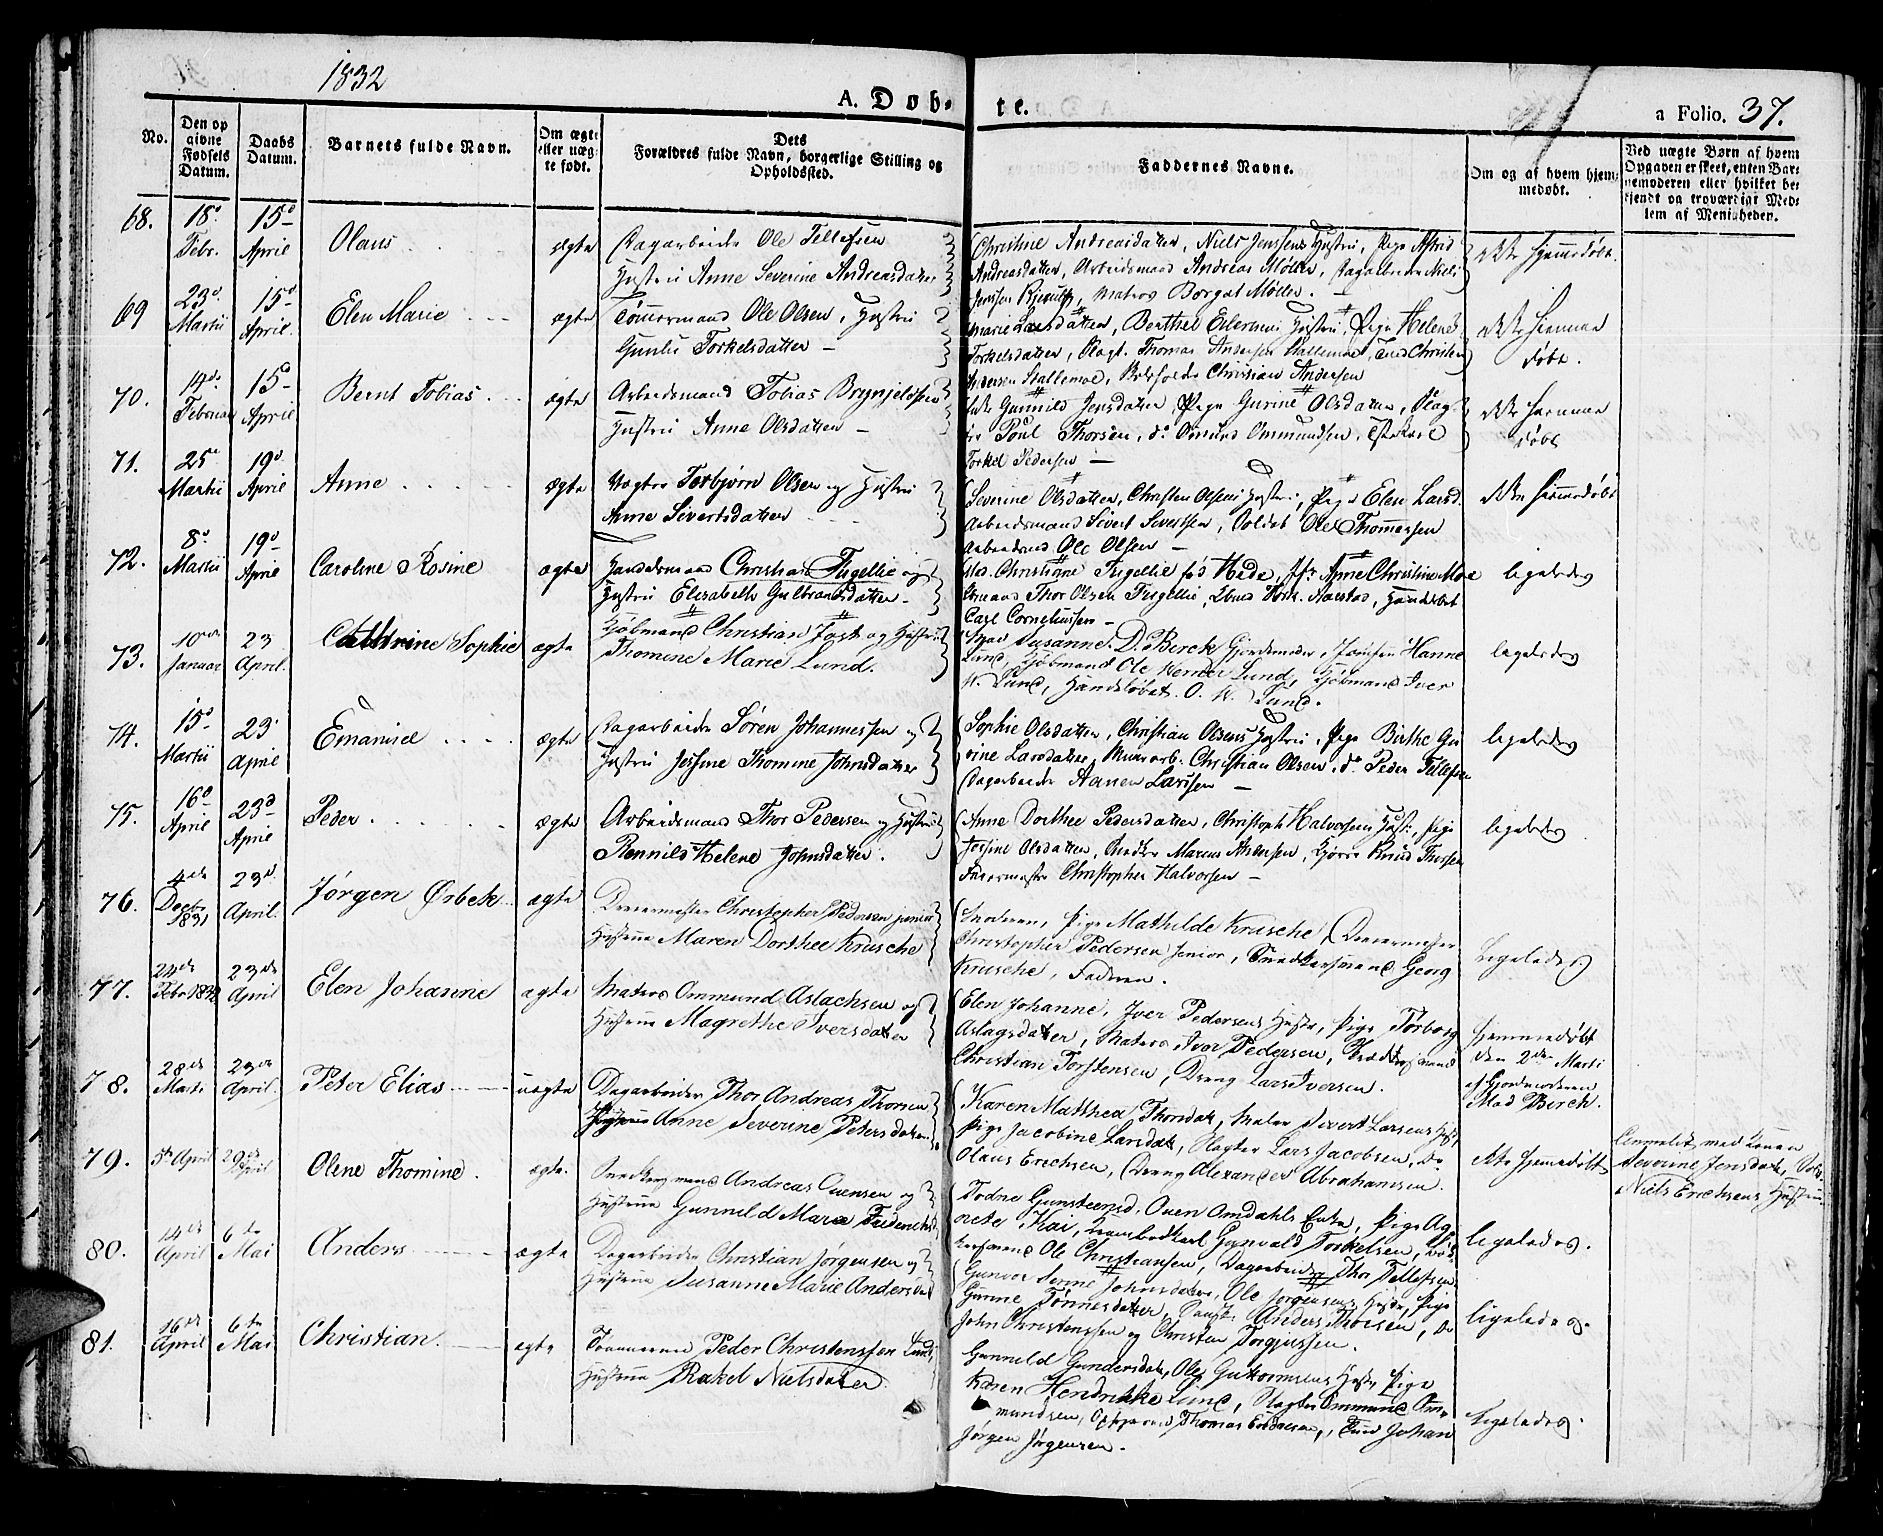 1832
A. Døb-
te.
a Folio. 37.
No.
Den op
givne
Fødsels
Datum.
Daabs
Datum.
Barnets fulde Navn.
Om ægte
eller uæg
te født.
Dets
Forældres fulde Navn, borgerlige Stilling og
Opholdssted.
Faddernes Navne.
Om og af hvem hjem-
medøbt.
Ved uægte Børn af hvem
Opgaven er skeet, enten Bar-
nemoderen eller hvilket be-
kjendt og troværdigt Med-
lem af Menigheden.
68. 18d Febr. 15d April Olaus ægte
Dagarbeider Ole Tellefsen
Hustru Anne Severine Andreasdatter
Christine Andreasdatter, Niels Jensens Hustru, Pige Astrid
Andreasdatter, Arbeidsmand Andreas Møller, Dagarbeider Niels
Jensen, Matros Borgat Møller.
ikke hjemmedøbt
69 23d Martii 15d April. Elen Marie ægte
Tømmermand Ole Olsen, Hustru
Gunild Torkelsdatter
Marie Larsdatter, Berthel Eilertsens Hustru, Pige Helene
Torkelsdatter, Thomas Andersen Stallemoe, Christen
Andersen Stallemoe, Christian Andersen
ikke hjemme
døbt.
70. 14de Februar 15d April Bernt Tobias ægte
Arbeidsmand Tobias Brynjelssen
Hustru Anne Olsdatter
Enke Gunnild Jensdatter, Pige Gurine Olsdatter,
Poul Thorsen, do Omund Ommundsen,
Torkel Pedersen
ikke hjemme
døbt
71. 25d Martii 19d April Anne ægte
Vægter Torbjørn Olsen og Hustru
Anne Sivertsdatter
Severine Olsdatter, Christen Olsens Hustru, Pige Elen Larsd.
Arbeidsmand Sivert Sivertsen, Soldat Ole Thommesen
Arbeidsmd Ole Olsen
ikke hjemmedøbt
72. 8d Martii 19d April Caroline Rosine ægte
Handelsmand Christian Fugellie og
Hustru Elisabeth Gulbrandsdatter
Mad. Christiane Fugellie fød Hede, Jfr Anne Christine Moe
Thor Olsen Fugellie,
Carl Corneliussen
ligeledes
73. 10de Januar 23 April. Cathrine Sophie ægte
Kjøbmand Christian Just og Hustru
Thomine Marie Lund.
Mad Susanne D. Berck Gjordemoder, Jomfru Hanne
Lund, Kjøbmand Ole Werner Lund, Kjøbmand Iver
W. Lund, Handelsbet. O. W. Lund.
ligeledes
74. 15d Martii 23 April Emanuel ægte
Dagarbeider Søren Johannessen og
Hustru Jossine Thomine Johnsdatter
Sophie Olsdatter, Christian Olsens Hustru, Pige Birthe Gu
rine Larsdatter, Murerarb. Christian Olsen, do Peder Tellefsen
Dagarbeider Hanen Larssen
ligeledes
75. 16d April 23d April Peder ægte
Arbeidsmand Thor Pedersen og Hustru
Rennild Helene Johnsdatter.
Anne Dorthee Pedersdatter, Christoph Halvorsens Hust., Pige
Josine Olsdatter, Snedker Marcus Ahlensen, Knud Thorsen
Christopher Halvorsen
ligeledes
76. 4de Decbr 1831 23d April. Jørgen Ørbek ægte
Dreiermester Christopher Pedersen junior
Hustrue Maren Dorthee Krusche
Moderen, Pige Mathilde Krusche, Dreiermester
Christopher Pedersen senior, Snedkersvend Georg
Krusche, Faderen.
Ligeledes
77. 24de Febr 1832 23de April Elen Johanne ægte
Matros Ommund Aslachsen og
Hustrue Magrethe Iversdatter
Elen Johanne, Iver Pedersens Hustr, Pige Torborg
Aslagsdatter, Matros Iver Pedersen,
Christian Torstensen, Dreng Lars Iversen.
Hjemmedøbt
den 2den Marti
af Gjordmoderen
Mad Birch.
78. 28de Marts 23de April. Peter Elias uægte
Dagarbeider Thor Andreas Thorsen
Pigen Anne Severine Petersdatter
Karen Mathea Thorsdatt, Maler Sivert Larsens Hust,
Pige Jacobine Larsdatt, Slagter Lars Jacobsen, Do
Olaus Erichsen, Dreng Alexander Abrahamsen.
ikke hjemmedøbt
Anmeldt med Konen
Severine Jensdatt,
Niels Erichsens Hustrue
79. 5te April 29de April Olene Thomine. ægte.
Snedkersvend Andreas Evensen og
Hustrue Gunnild Maria Frederiksd.
Todne Gunsteensd, Ouen Omdahls Enke, Pige Ag
nete Kai, Gunvald Torkelsen,
Ole Christiansen, Dagarbeider Thor Tellefsen
ligeledes.
80. 14de April 6te Mai Anders ægte
Dagarbeider Christian Jørgensen og
Hustrue Susanne Marie Andersdat
Gunvor Serine Johnsdatter, Ole Jørgensens Hustr, Pige
Gunne Tønnesdatter, Anders Thorsen, Do
John Christenssen og Christen Torgjussen.
ligeledes
81. 16de April 6te Mai Christian. ægte
Tømmermd Peder Christenssen Lund,
Hustrue Rakel Nielsdatter
Gunnild Gundersdatt, Ole Guttormsens Hustr, Pige
Karen Hendrikke Lund, Slagter Ommund Om-
mundsen, Thomas, Johan
Jørgen Jørgensen.
Ligeledes.